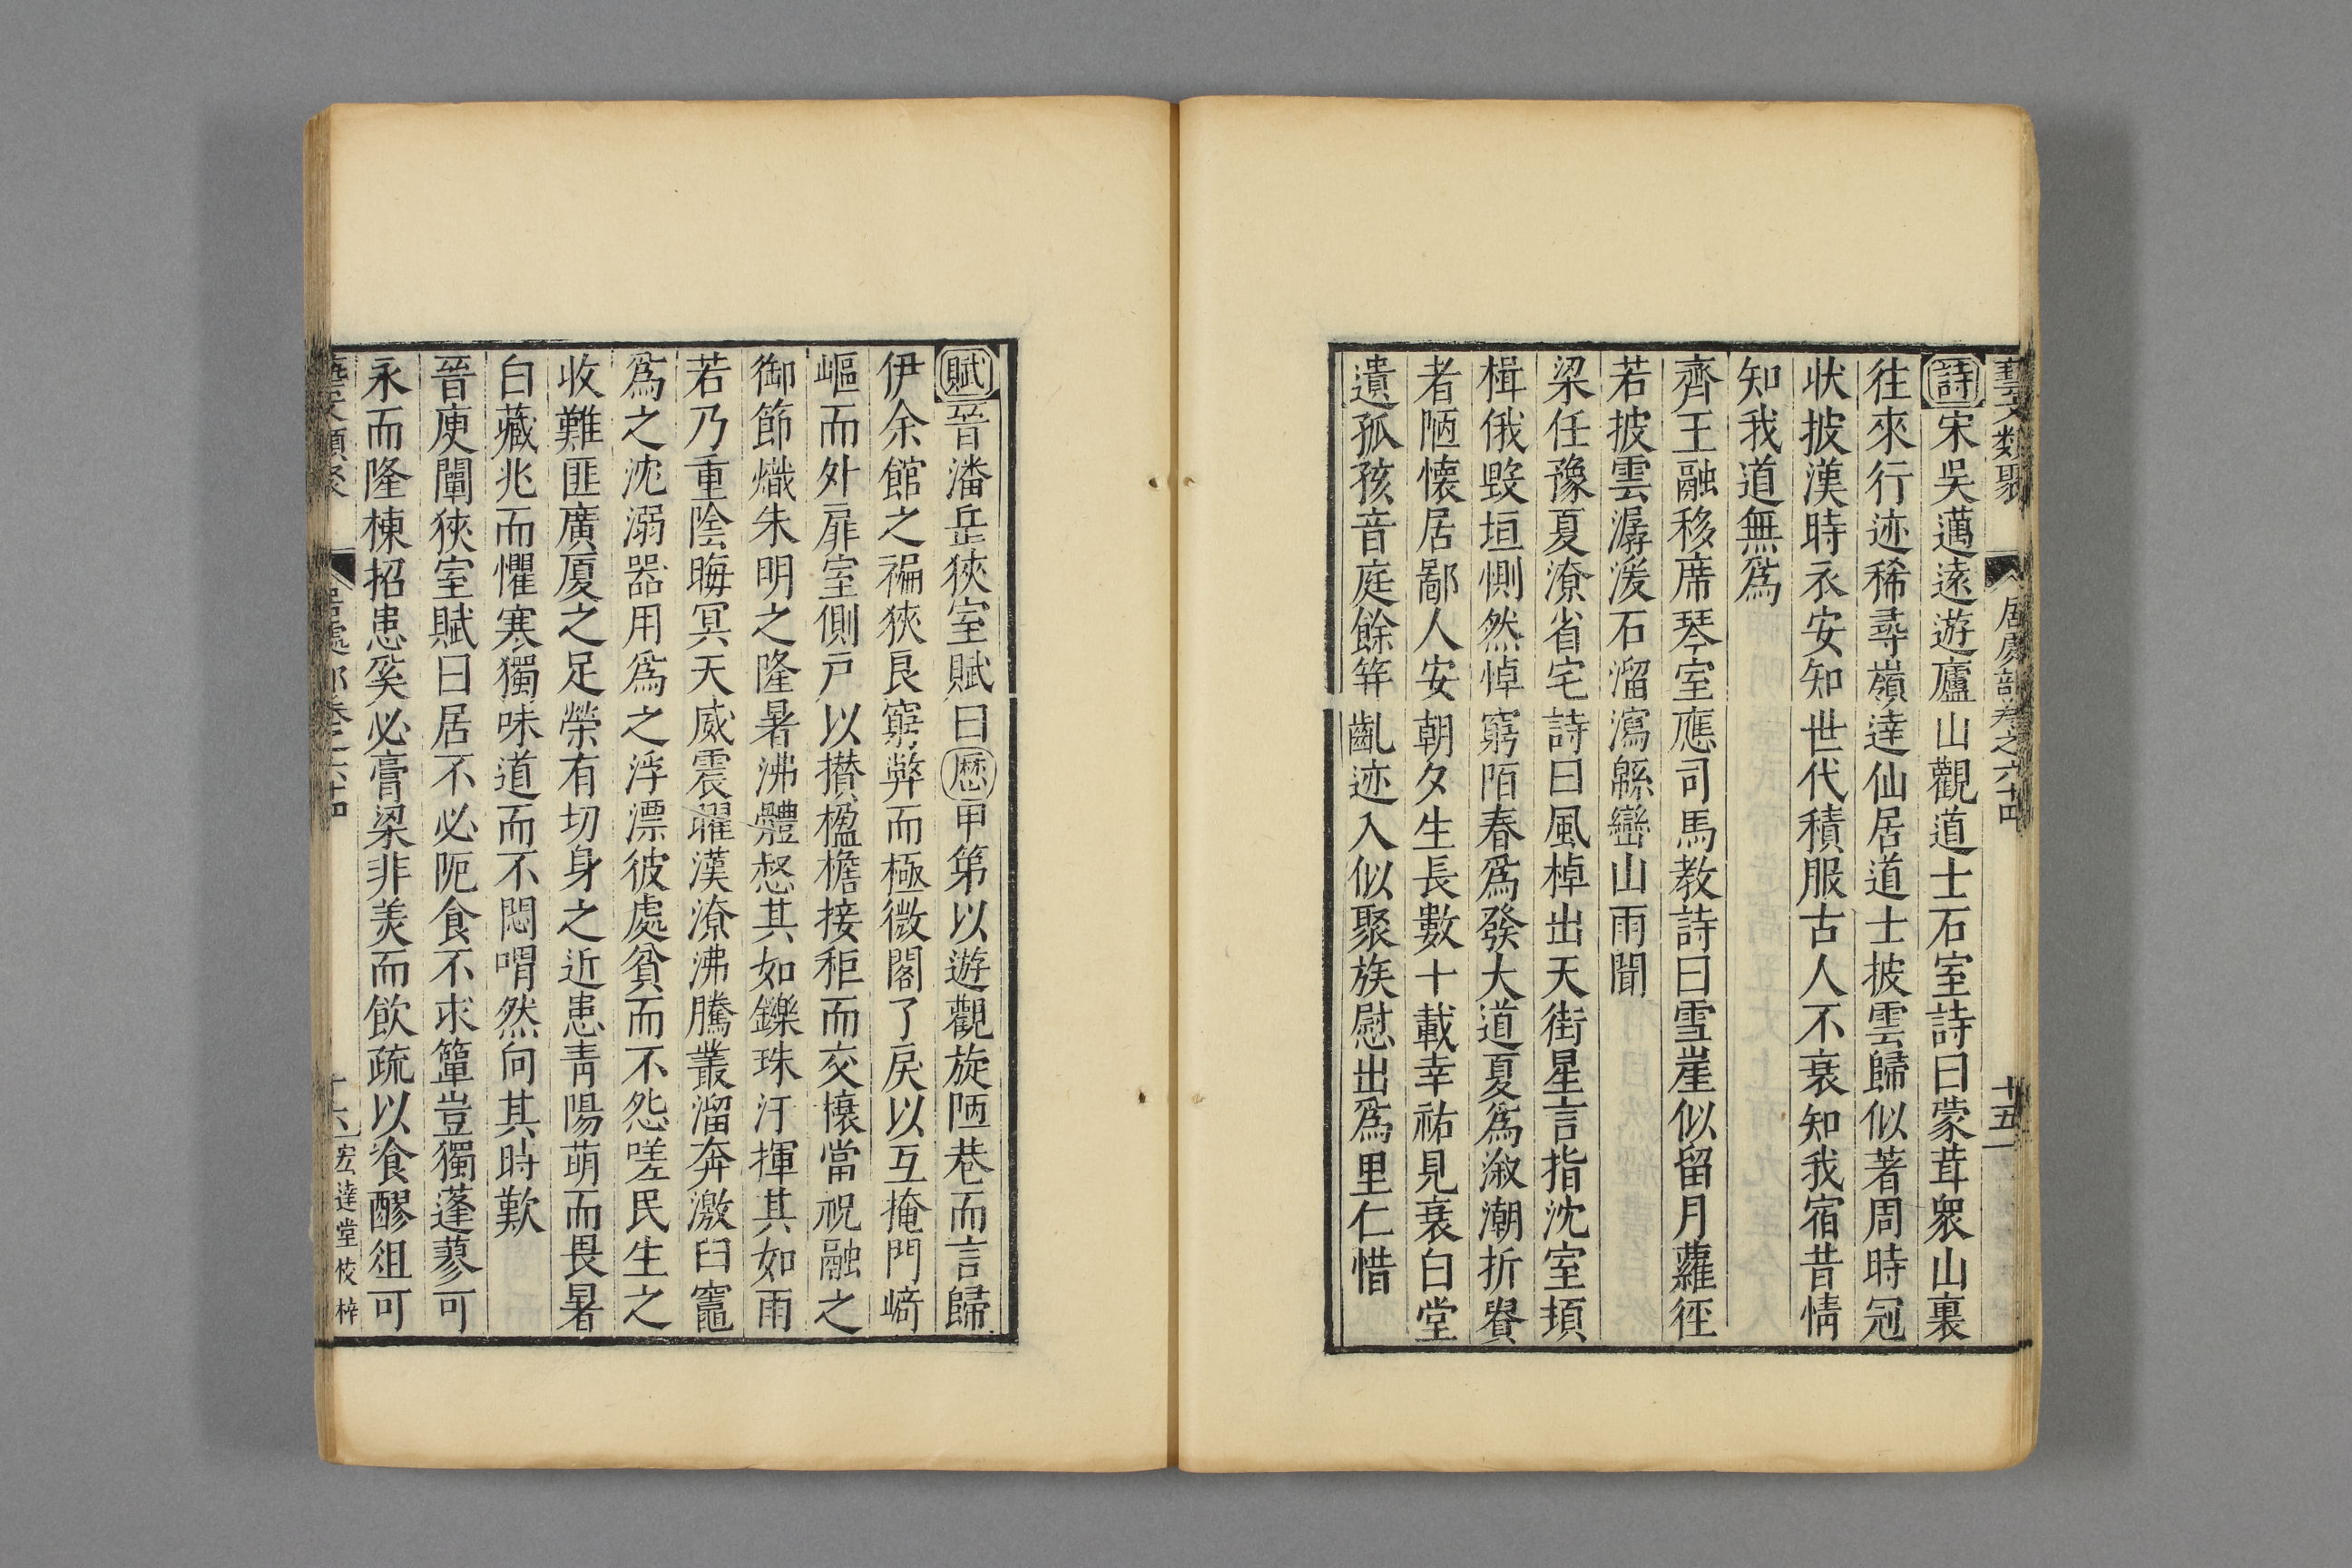 藝文類聚 居處部卷之六十四 十五
詩宋吳邁遠遊廬山觀道士石室詩曰蒙茸衆山裏
往來行迹稀尋嶺達仙居道士披雲歸似著周時冠
狀披漢時衣安知世代積服古人不衰知我宿昔情
知我道無爲
齊王融移席琴室應司馬教詩曰雪崖似留月蘿徑
若披雲潺湲石溜瀉緜巒山雨聞
梁任豫夏潦省宅詩曰風棹出天街星言指沈室頊
楫俄毀垣惻然悼窮陌春爲發大道夏爲溆潮折貲
者陋懷居鄙人安朝夕生長數十載幸祐見衰白堂
遺孤孩音庭餘笄齓迹入似聚族慰出爲里仁惜
賦晉潘岳狹室賦曰歷甲第以遊觀旋陋巷而言歸
伊余館之褊狹良窮弊而極微閣了戾以互掩門﨑
嶇而外扉室側戶以攢楹檐接秬而交榱當祝融之
御節熾朱明之隆暑沸體惄其如鑠珠汗揮其如雨
若乃重陰晦冥天威震曜漢潦沸騰叢溜奔激臼竈
爲之沈溺器用爲之浮漂彼處貧而不怨嗟民生之
收難匪廣厦之足榮有切身之近患青陽萌而畏暑
白藏兆而懼寒獨味道而不悶喟然向其時歎
晉庾闡狹室賦曰居不必阨食不求簞豈獨蓬蓼可
永而隆棟招患奚必膏粱非美而飲疏以飡醪俎可
藝文類聚 居處部卷之六十四 十六 宏達堂校梓